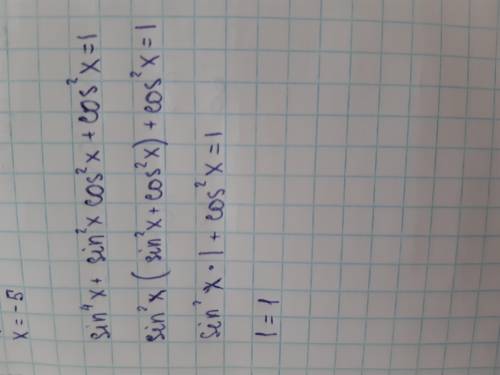 x = -5
sin⁴x + sin²x cos²x + cos²x = 1
sin²x (sin²x + cos²x) + cos²x = 1
sin²x · 1 + cos²x = 1
1 = 1